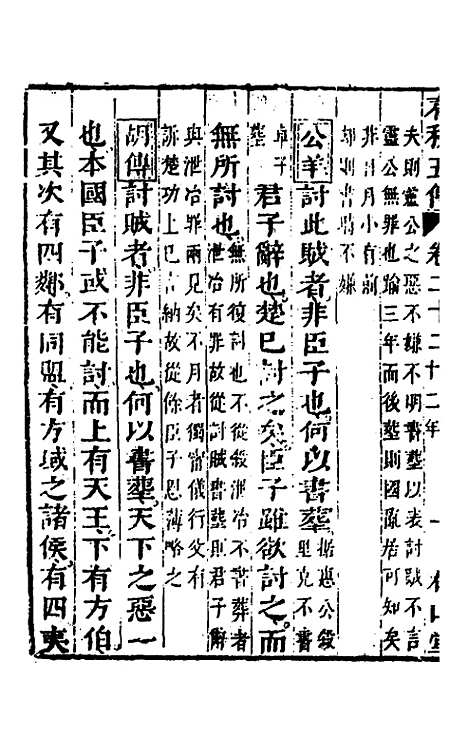 春秋五傳 卷二十二 十二年 一
夫則靈公之惡不嫌不明書葬以表討賊不言
靈公無罪也踰三年而後葬則國亂居可知矣
非日月小有前
却則書時不嫌
公羊 討此賊者非臣子也何以書葬 據惠公殺
里克不書
葬
卓子 君子辭也楚已討之矣臣子雖欲討之而
無所討也 無所復討也不從殺泄冶不書葬者
泄冶有罪故從討賊書葬則君子辭
與泄冶罪兩見矣不月者獨甯儀行父有
訴楚功上已言納故從餘臣子恩薄略之
胡傳 討賊者非臣子也何以書葬天下之惡一
也本國臣子或不能討而上有天王下有方伯
又其次有四鄰有同盟有方域之諸侯有四夷